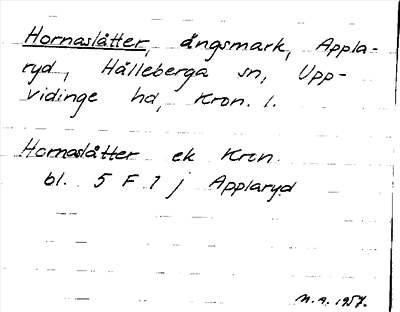 Hornaslåtter, ängsmark, Appla-
ryd, Hälleberga sn, Upp-
vidinge hd, Kron. l.
Hornaslåtter ek Kron
bl. 5 F 1 j Applaryd
M.A. 1957.